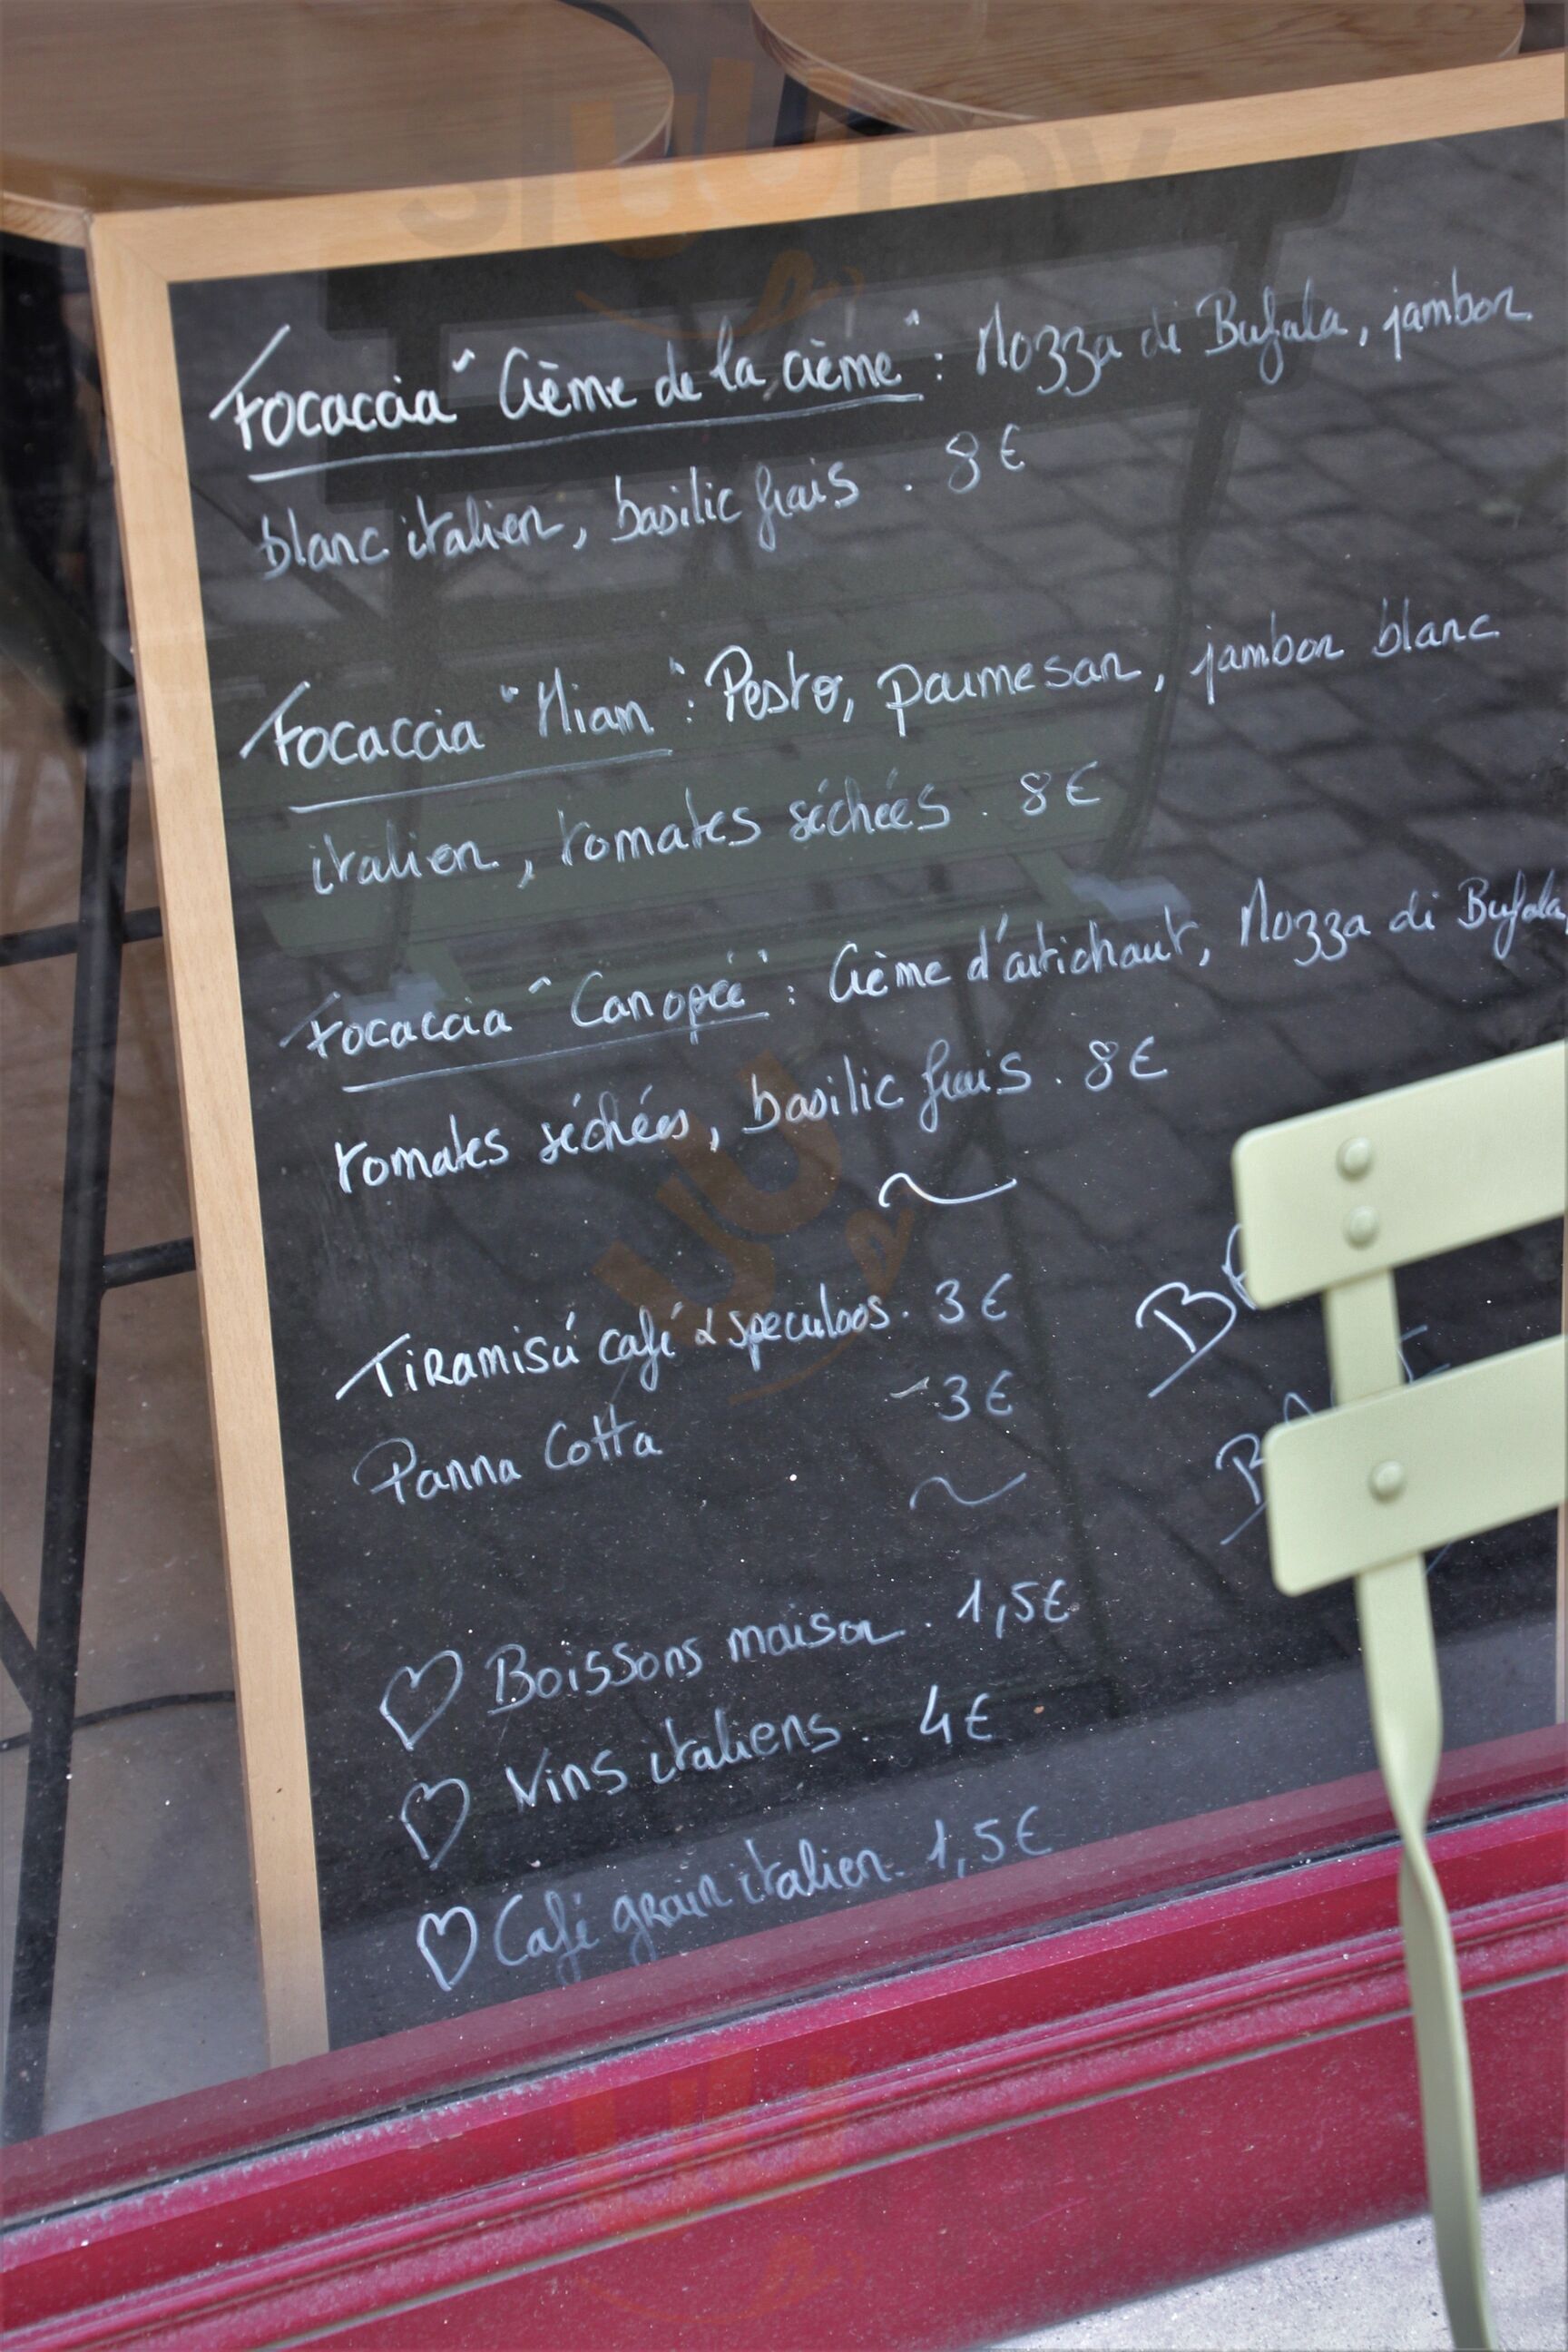 sluurpy
Focaccia "Crème de la crème" : Mozza di Bufala, jambon
blanc italien, basilic frais . 8€
Focaccia "Miam" : Pesto, parmesan, jambon blanc
italien, tomates séchées . 8€
Focaccia "Canopée" : Crème d'artichaut, Mozza di Bufala,
tomates séchées, basilic frais . 8€
~
Tiramisú café & speculoos . 3€
Panna Cotta - 3€
~
♡ Boissons maison . 1,5€
♡ Vins italiens . 4€
♡ Café grain italien . 1,5€